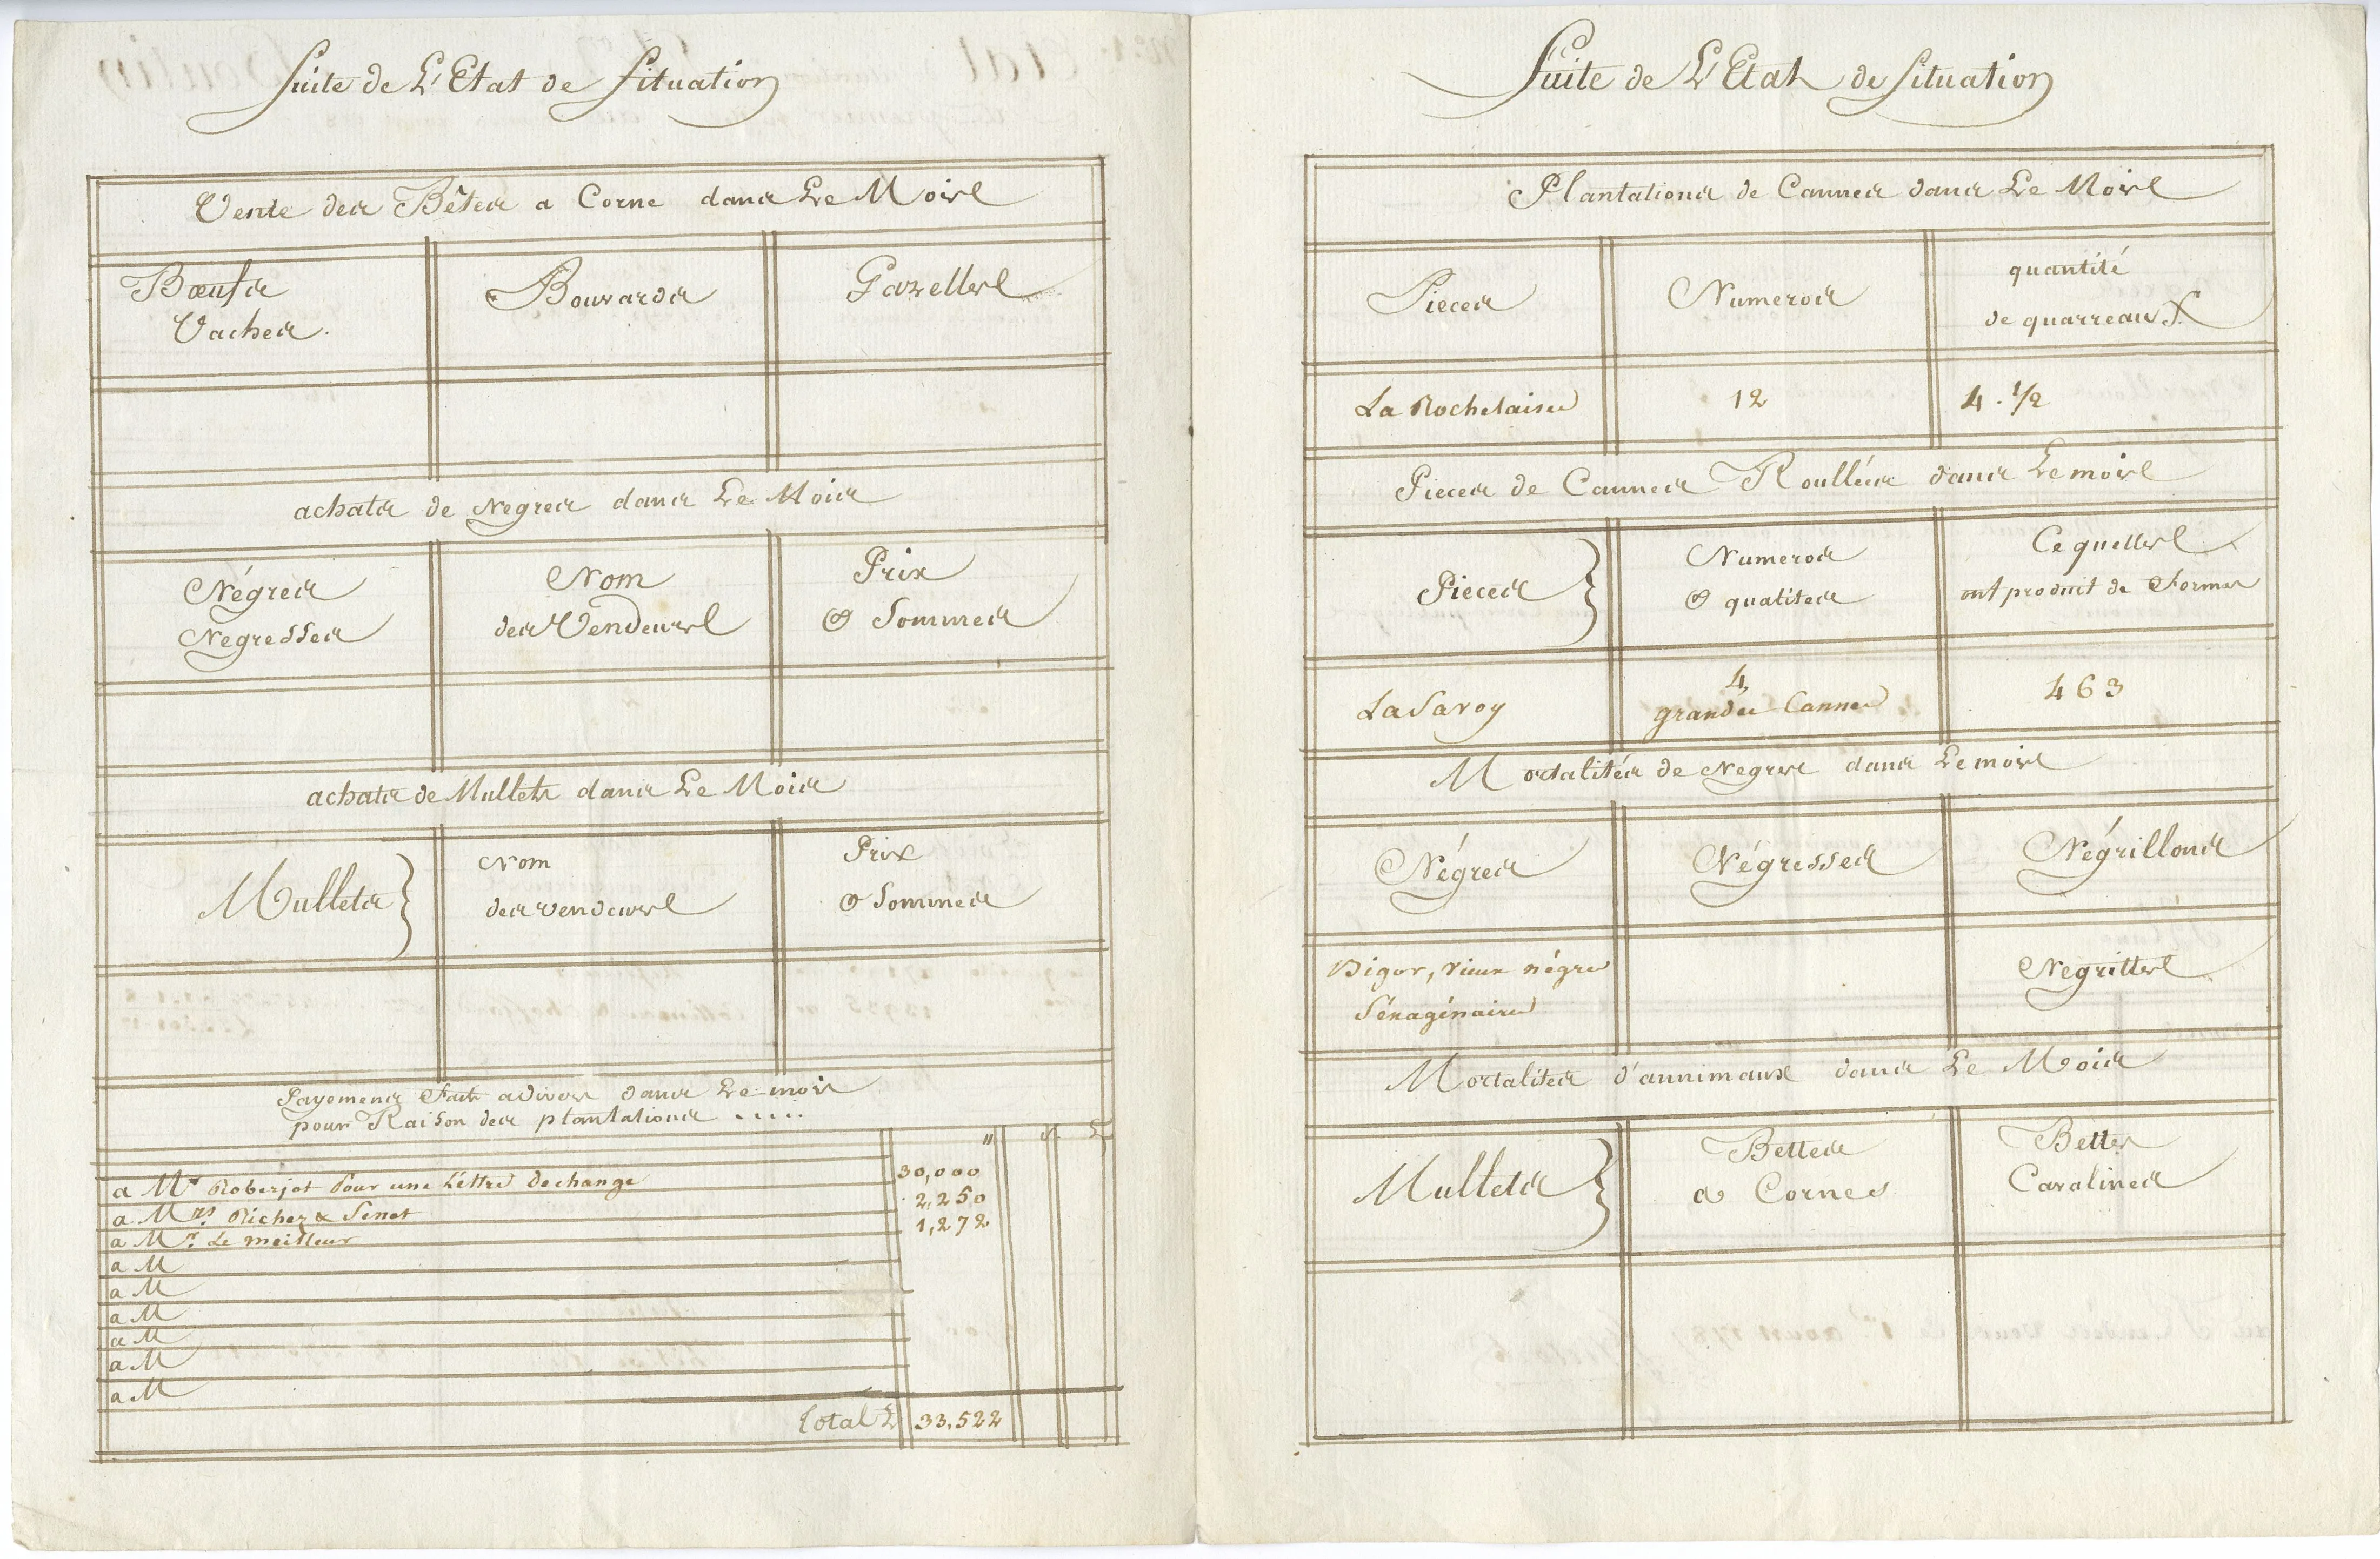 Suite de L'Etat de Situation
Vente des Bêtes a Corne dans Le Mois
Bœufs
Vaches.
Bouvards
Gazelles
achats de Negres dans Le Mois
Négres
Negresses
Nom
des Vendeurs
Prix
& Sommes
achats de Mullets dans Le Mois
Mullets }
Nom
des vendeurs
Prix
& Sommes
Payemens Faits a divers dans Le mois
pour Raison des plantations .....
a Mr Roberjot Pour une Lettre dechange 30,000
a Mrs. Richez & Senet 2,250
a Mr. Le meilleur 1,272
a M
a M
a M
a M
a M
a M
Total L 33,522
Suite de L'Etat de Situation
Plantations de Cannes dans Le Mois
Pieces
Numeros
quantité
de quarreaux
La Rochelaise 12 4. 1/2
Pieces de Cannes Roullées dans Le mois
Pieces }
Numeros
& qualites
Ce quelles
ont produit de Formes
La Savoy
4
grandes Cannes
463
Mortalités de Negres dans Le mois
Négres
Négresses
Négrillons
Bigor, vieux négre
Séxagénaire
Negrittes
Mortalites d'annimaux dans Le Mois
Mullets }
Bettes
a Cornes
Bettes
Cavalines